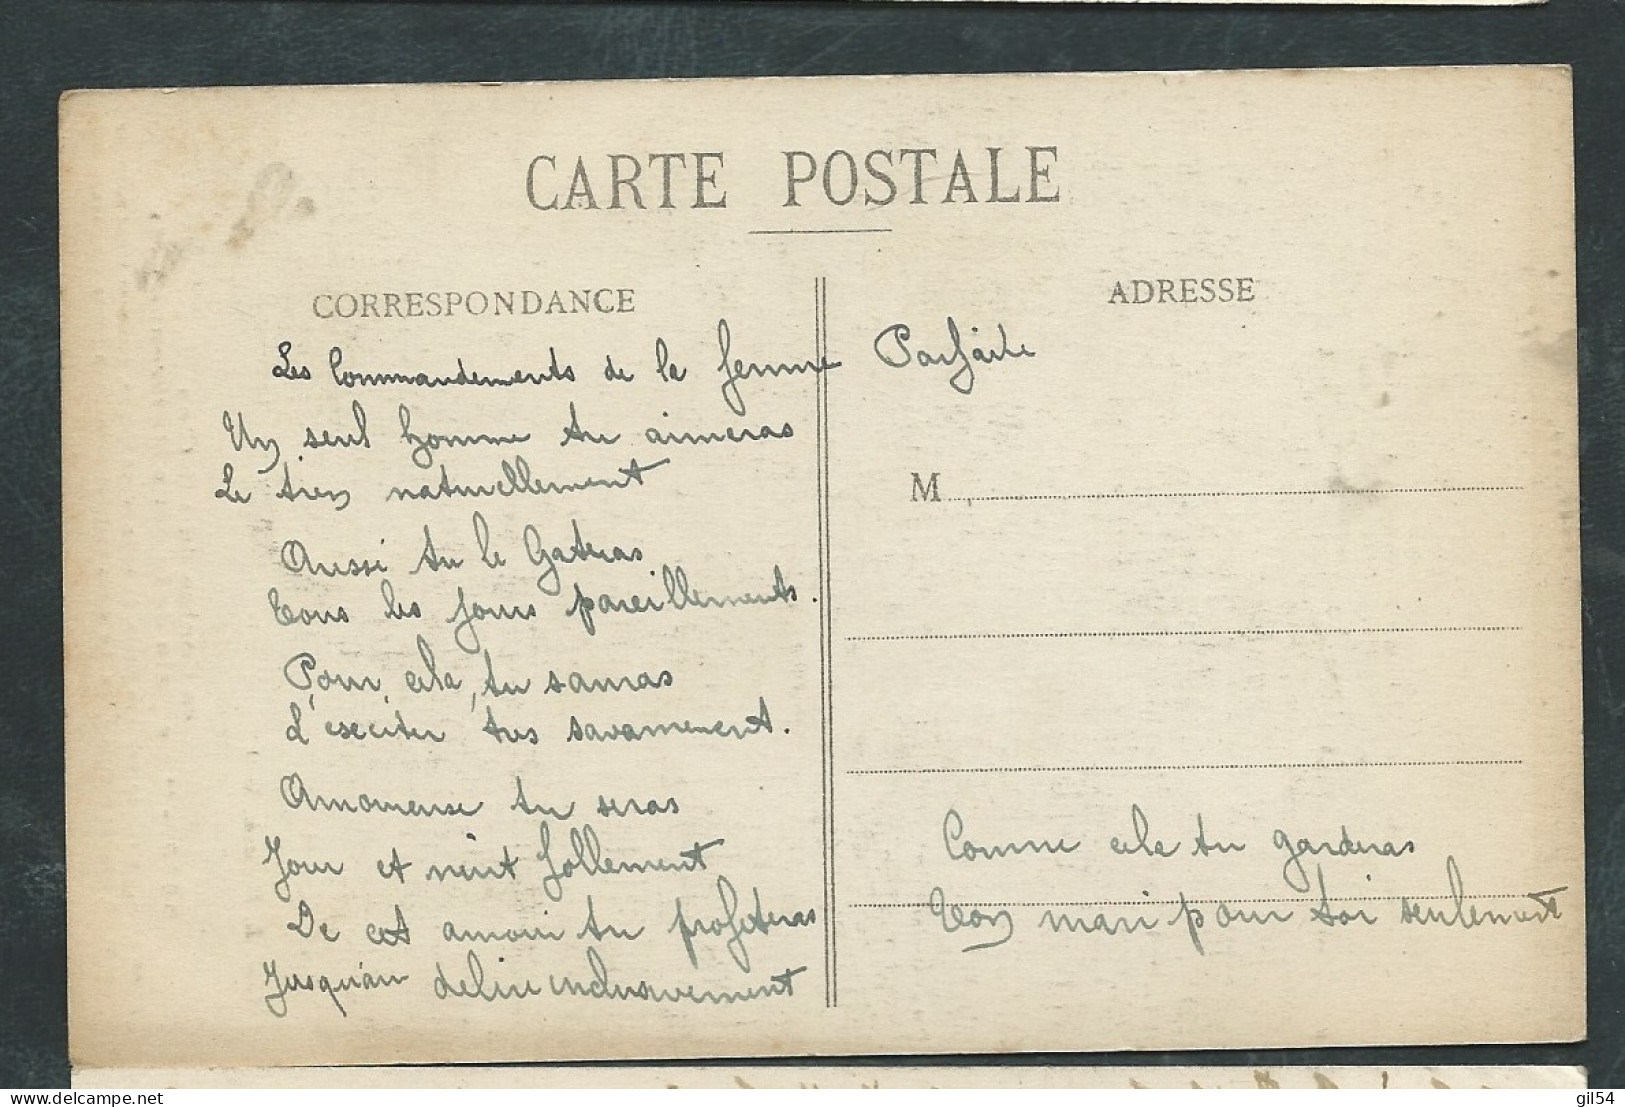 CARTE POSTALE
CORRESPONDANCE
ADRESSE
Les Commandements de la femme Parfaite
Un seul homme tu aimeras
Le tien naturellement
Aussi tu le Gateras
Tous les jours pareillements.
Pour cela, tu sauras
L'exciter tres savamment.
Amoureuse tu seras
Jour et nuit follement
De cet amour tu profiteras
Jusqu'au delire inclusivement
M
Comme cela tu garderas
Ton mari pour toi seulement
gil54